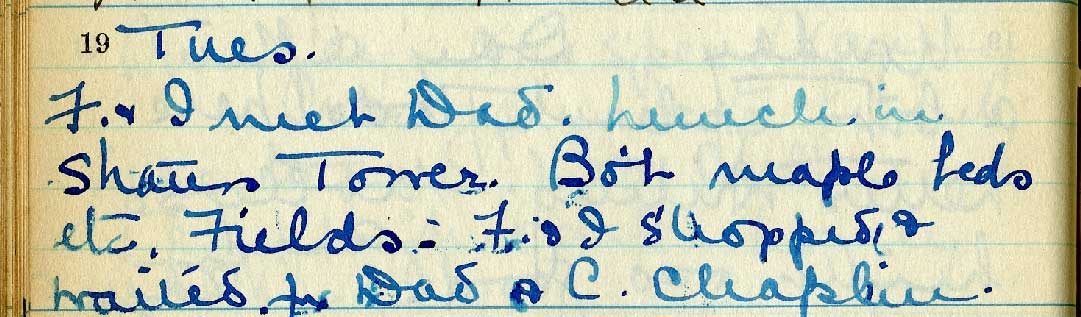 19 Tues.
F. & I met Dad. Lunch in
Tower. Bo't maple beds
etc. Fields: F. & I shopped, &
waited for Dad & C. Chaplin.